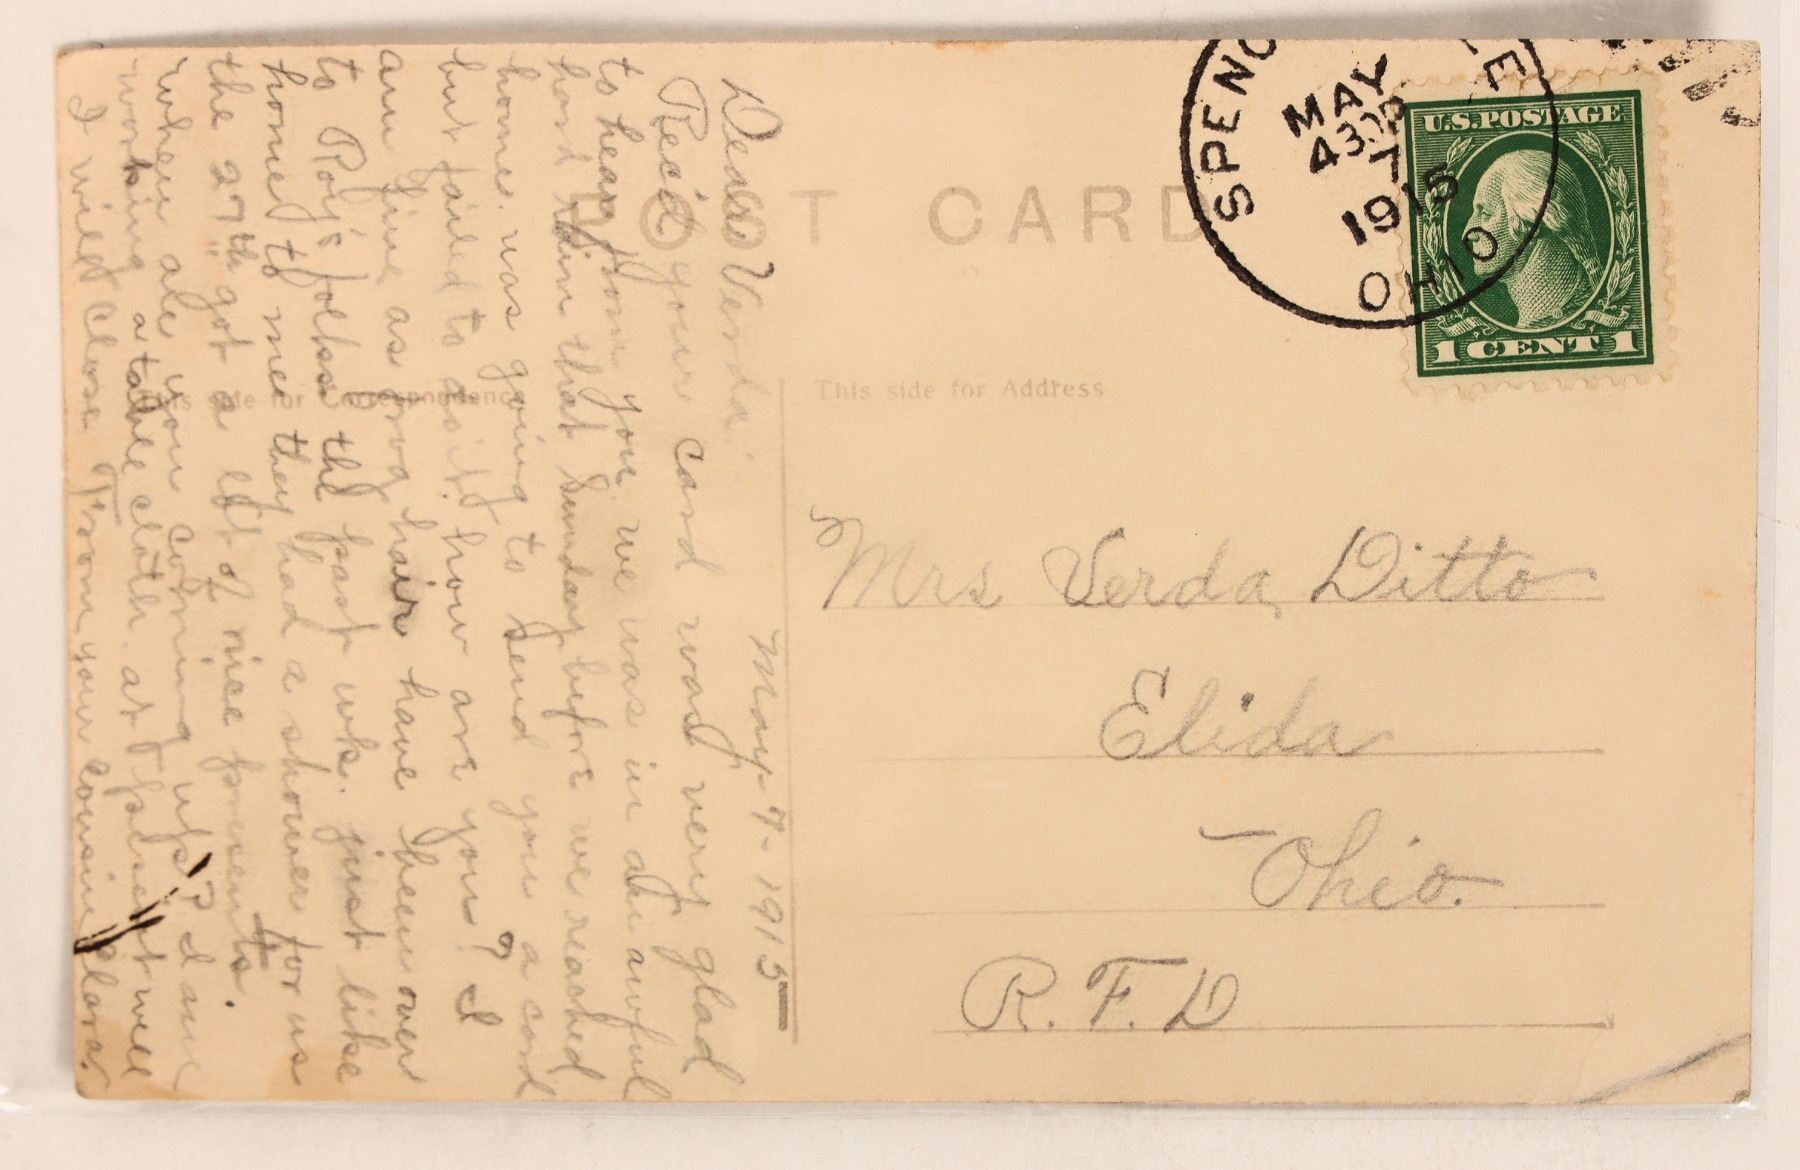 May 7- 1915
Dear Verda.
Rec'd your card was very glad
to hear from you we was in an awful
hard rain that Sunday before we reached
home. was going to send you a card
but failed to do it. how are you? I
am fine as frog hair have been over
to Roy's folks the past wk. just like
home to me they had a shower for us
the 27th got a lot of nice presents.
when are you coming up? I am
working a table cloth. at present well
I will close From your cousin Clara.
POST CARD
This side for Correspondence
This side for Address
SPENC E
MAY
430P
7
1915
OHIO
U.S. POSTAGE
1 CENT 1
Mrs Verda Ditto
Elida
Ohio.
R. F. D